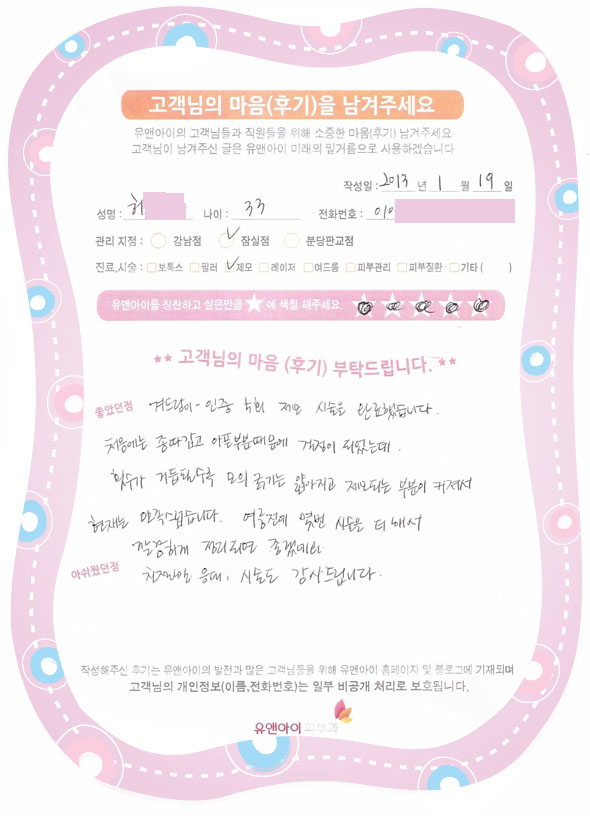 고객님의 마음(후기)을 남겨주세요
유앤아이의 고객님들과 직원들을 위해 소중한 마음(후기) 남겨주세요
고객님이 남겨주신 글은 유앤아이 미래의 밑거름으로 사용하겠습니다
작성일 : 2013 년 1 월 19 일
성명 : 허 나이 : 33 전화번호 : 010
관리 지점 : 강남점 잠실점 분당판교점
진료,시술 : 보톡스 필러 제모 레이저 여드름 피부관리 피부질환 기타 ( )
유앤아이를 칭찬하고 싶은만큼 ★ 에 색칠 해주세요.
** 고객님의 마음 (후기) 부탁드립니다. **
좋았던점 겨드랑이 - 인중 제모 시술을 완료했습니다.
처음에는 좀 따갑고 아픈부분때문에 걱정이 되었는데.
횟수가 거듭될수록 모의 굵기는 얇아지고 제모되는 부분이 커져서
현재는 만족스럽습니다. 여름전에 몇번 시술을 더 해서
깔끔하게 정리되면 좋겠네요
아쉬웠던점 친절한 응대, 시술도 감사드립니다.
작성해주신 후기는 유앤아이의 발전과 많은 고객님들을 위해 유앤아이 홈페이지 및 블로그에 기재되며
고객님의 개인정보(이름,전화번호)는 일부 비공개 처리로 보호됩니다.
유앤아이피부과